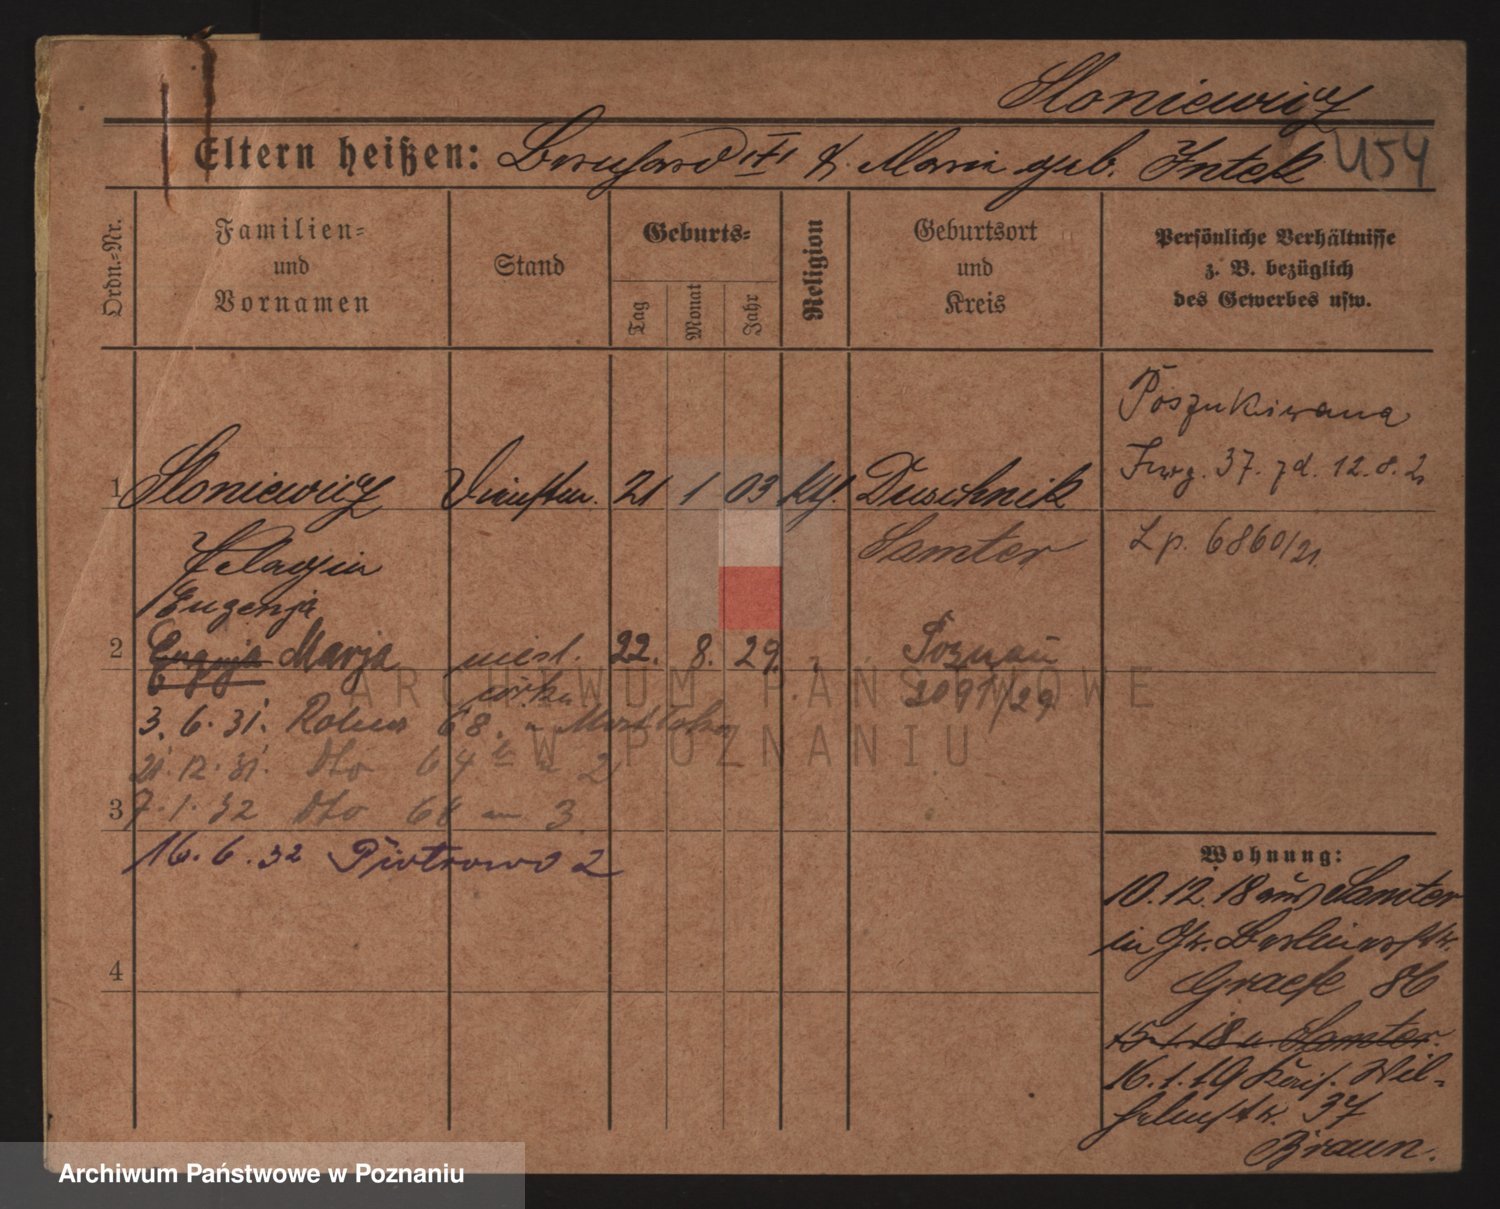 Sloniewicz
Eltern heißen: Bernhard & Marie geb. Intek
U54
Ordn.-Nr.
Familien-
und
Vornamen
Stand
Geburts-
Tag
Monat
Jahr
Religion
Geburtsort
und
Kreis
Persönliche Verhältnisse
z. B. bezüglich
des Gewerbes usw.
Poszukiwana
37. 12.8.21
Lp. 6860/21.
1 Sloniewicz 21 1 03 kth. Duschnik
Samter
Pelagia
Eugenja
2 Marja 22. 8. 29. Poznań
córka 2091/29
3. 6. 31. 68.
21. 12. 31. dto 64 2
3 7. 1. 32 dto 64 3.
16. 6. 32 Piotrowo 2
4
Wohnung:
10.12.18 aus Samter
in Gr. Berlinerstr.
Graefe 86
15.1.18 n. Samter.
16.1.19 Kais. Wil-
helmstr. 37
Braun.
ARCHIWUM PAŃSTWOWE
W POZNANIU
Archiwum Państwowe w Poznaniu